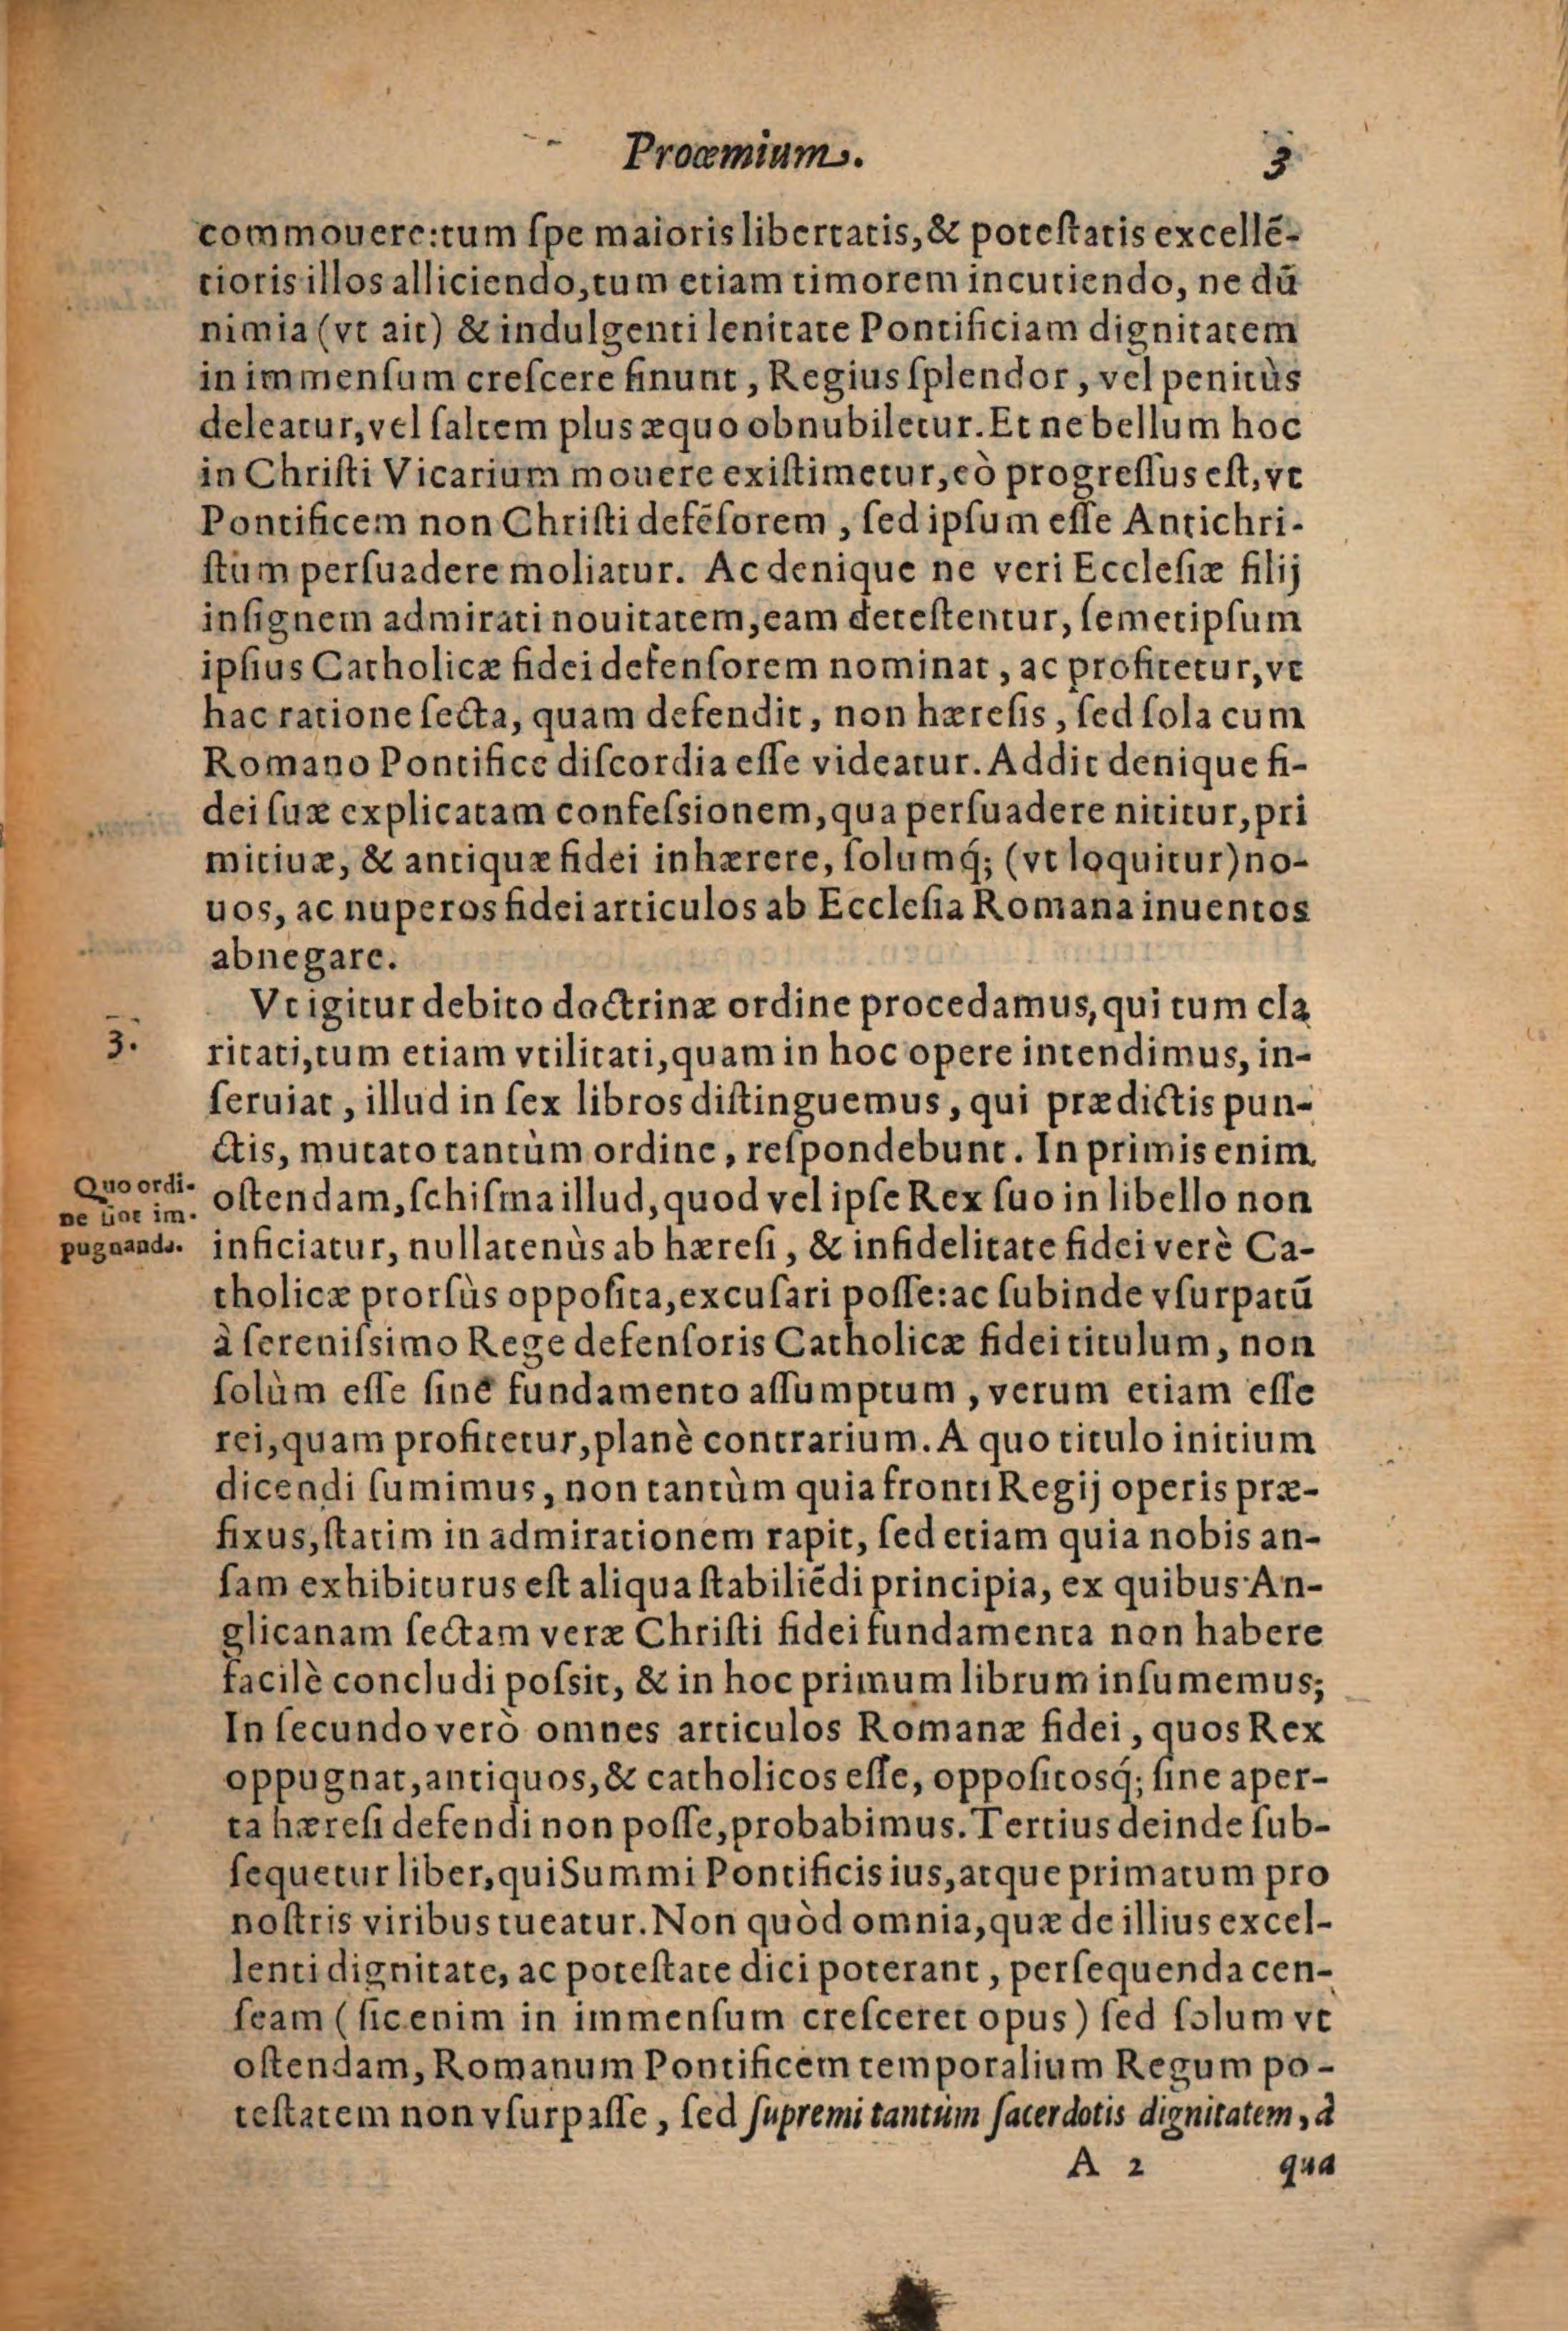 Proœmium.
3
commouere: tum ſpe maioris libertatis, & poteſtatis excellē-
tioris illos alliciendo, tum etiam timorem incutiendo, ne dū
nimia (vt ait) & indulgenti lenitate Pontificiam dignitatem
in immenſum creſcere ſinunt, Regius ſplendor, vel penitùs
deleatur, vel ſaltem plus æquo obnubiletur. Et ne bellum hoc
in Chriſti Vicarium mouere exiſtimetur, eò progreſſus eſt, vt
Pontificem non Chriſti defēſorem, ſed ipſum eſſe Antichri-
ſtum perſuadere moliatur. Ac denique ne veri Eccleſiæ filij
inſignem admirati nouitatem, eam deteſtentur, ſemetipſum
ipſius Catholicæ fidei defenſorem nominat, ac profitetur, vt
hac ratione ſecta, quam defendit, non hæreſis, ſed ſola cum
Romano Pontifice diſcordia eſſe videatur. Addit denique fi-
dei ſuæ explicatam confeſsionem, qua perſuadere nititur, pri
mitiuæ, & antiquæ fidei inhærere, ſolumq́; (vt loquitur) no-
uos, ac nuperos fidei articulos ab Eccleſia Romana inuentos
abnegare.
Vt igitur debito doctrinæ ordine procedamus, qui tum cla
3.
ritati, tum etiam vtilitati, quam in hoc opere intendimus, in-
ſeruiat, illud in ſex libros diſtinguemus, qui prædictis pun-
ctis, mutato tantùm ordine, reſpondebunt. In primis enim
Quo ordi-
ne ſint im-
pugnanda.
oſtendam, ſchiſma illud, quod vel ipſe Rex ſuo in libello non
inficiatur, nullatenùs ab hæreſi, & infidelitate fidei verè Ca-
tholicæ prorſùs oppoſita, excuſari poſſe: ac ſubinde vſurpatū
à ſereniſsimo Rege defenſoris Catholicæ fidei titulum, non
ſolùm eſſe ſine fundamento aſſumptum, verum etiam eſſe
rei, quam profitetur, planè contrarium. A quo titulo initium
dicendi ſumimus, non tantùm quia fronti Regij operis præ-
fixus, ſtatim in admirationem rapit, ſed etiam quia nobis an-
ſam exhibiturus eſt aliqua ſtabiliēdi principia, ex quibus An-
glicanam ſectam veræ Chriſti fidei fundamenta non habere
facilè concludi poſsit, & in hoc primum librum inſumemus;
In ſecundo verò omnes articulos Romanæ fidei, quos Rex
oppugnat, antiquos, & catholicos eſſe, oppoſitosq́; ſine aper-
ta hæreſi defendi non poſſe, probabimus. Tertius deinde ſub-
ſequetur liber, qui Summi Pontificis ius, atque primatum pro
noſtris viribus tueatur. Non quòd omnia, quæ de illius excel-
lenti dignitate, ac poteſtate dici poterant, perſequenda cen-
ſeam (ſic enim in immenſum creſceret opus) ſed ſolum vt
oſtendam, Romanum Pontificem temporalium Regum po-
teſtatem non vſurpaſſe, ſed ſupremi tantùm ſacerdotis dignitatem, à
A 2
qua